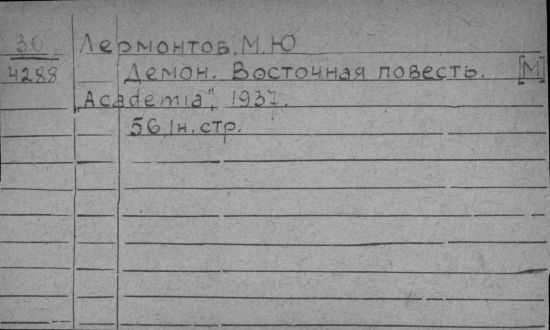 30 Лермонтов, М.Ю
4288 Демон. Восточная повесть. [М]
„Academia", 1937.
56,1н.стр.